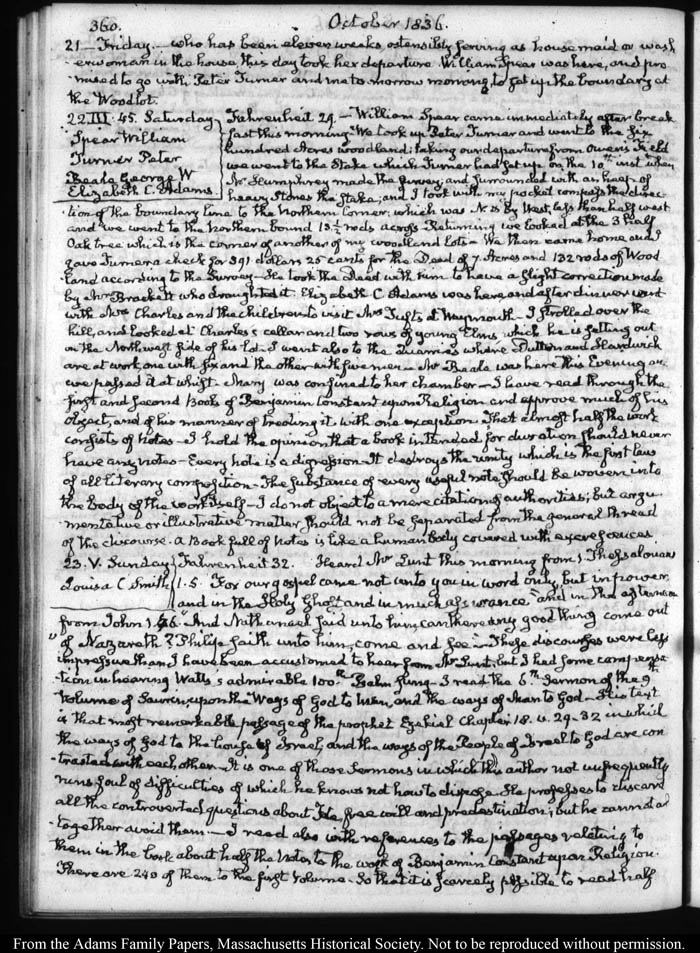 360.
October 1836.
21 – Friday. – who has been eleven weeks ostensibly serving as house maid or wash
erwoman in the house, this day took her departure. William Spear was here, and pro
mised to go with Peter Turner and me tomorrow morning to set up the boundary at
the Woodlot.
22. III. 45. Saturday
Spear William
Turner Peter
Beale George W
Elizabeth C. Adams
Fahrenheit 29. – William Spear came immediately after break
fast this morning. We took up Peter Turner and went to the six
hundred Acres woodland; taking our departure from Owen's Field
we went to the Stake which Turner had set up on the 10th inst when
Mr Humphrey made the survey; and surrounded with an heap of
heavy stones the Stake; and I took with my pocket compass the direc
tion of the boundary line to the Northern Corner; which was N. 15 by West, less than half west
and we went to the Northern bound 13½ rods across. Returning we looked at the 3d half
Oak tree which is the corner of another of my woodland lots – We then came home and I
gave Turner a check for 391 dollars 25 cents for the Deed of 7 Acres and 132 rods of Wood
land according to the Survey – He took the Deed with him to have a slight correction made
by Mr Brackett who draughted it. Elizabeth C Adams was here, and after dinner went
with Mrs Charles and the children to visit Mrs Tufts at Weymouth – I strolled over the
hill, and looked at Charles's cellar and two rows of young Elms, which he is setting out
on the Northwest side of his lot. I went also to the Quarries where Dutton and Hardwick
are at work, one with six and the other with five men – Mr Beale was here this Evening and
we passed it at whist. Mary was confined to her chamber – I have read through the
first and second Books of Benjamin Constant upon Religion and approve much of his
object, and of his manner of treating it with one exception. That almost half the work
consists of notes – I hold the opinion that a book intended for duration should never
have any notes – Every note is a digression – It destroys the unity which is the first law
of all literary composition – The substance of every useful note should be woven into
the body of the work itself – I do not object to a mere citation of authorities; but argu
mentative or illustrative matter should not be separated from the general thread
of the discourse. a Book full of notes is like a human body covered with excrescences.
23. V. Sunday
Louisa C Smith
Fahrenheit 32. Heard Mr Lunt this morning from 1 Thessalonians
1. 5. "For our gospel came not unto you in word only, but in power,
and in the Holy Ghost, and in much assurance" and in the afternoon
from John 1. 46. "And Nathanael said unto him, can there any good thing come out
of Nazareth? Philip saith unto him, come and see" – These discourses were less
impressive than I have been accustomed to hear from Mr Lunt, but I had some compensa
tion in hearing Watts's admirable 100th Psalm sung – I read the 6th Sermon of the 9th
volume of Saurin, upon the Ways of God to Men, and the ways of Man to God – His text
is that most remarkable passage of the prophet Ezekiel Chapter 18. v. 29–32 in which
the ways of God to the house of Israel, and the ways of the People of Israel to God are con
trasted with each other – It is one of those Sermons in which this author not unfrequently
runs foul of difficulties of which he knows not how to dispose. He professes to discard
all the controverted questions about Fate free will and predestination; but he cannot al
together avoid them. – I read also with references to the passages relating to
them in the book about half the Notes to the work of Benjamin Constant upon Religion.
There are 240 of them to the first Volume – So that it is scarcely possible to read half
From the Adams Family Papers, Massachusetts Historical Society. Not to be reproduced without permission.